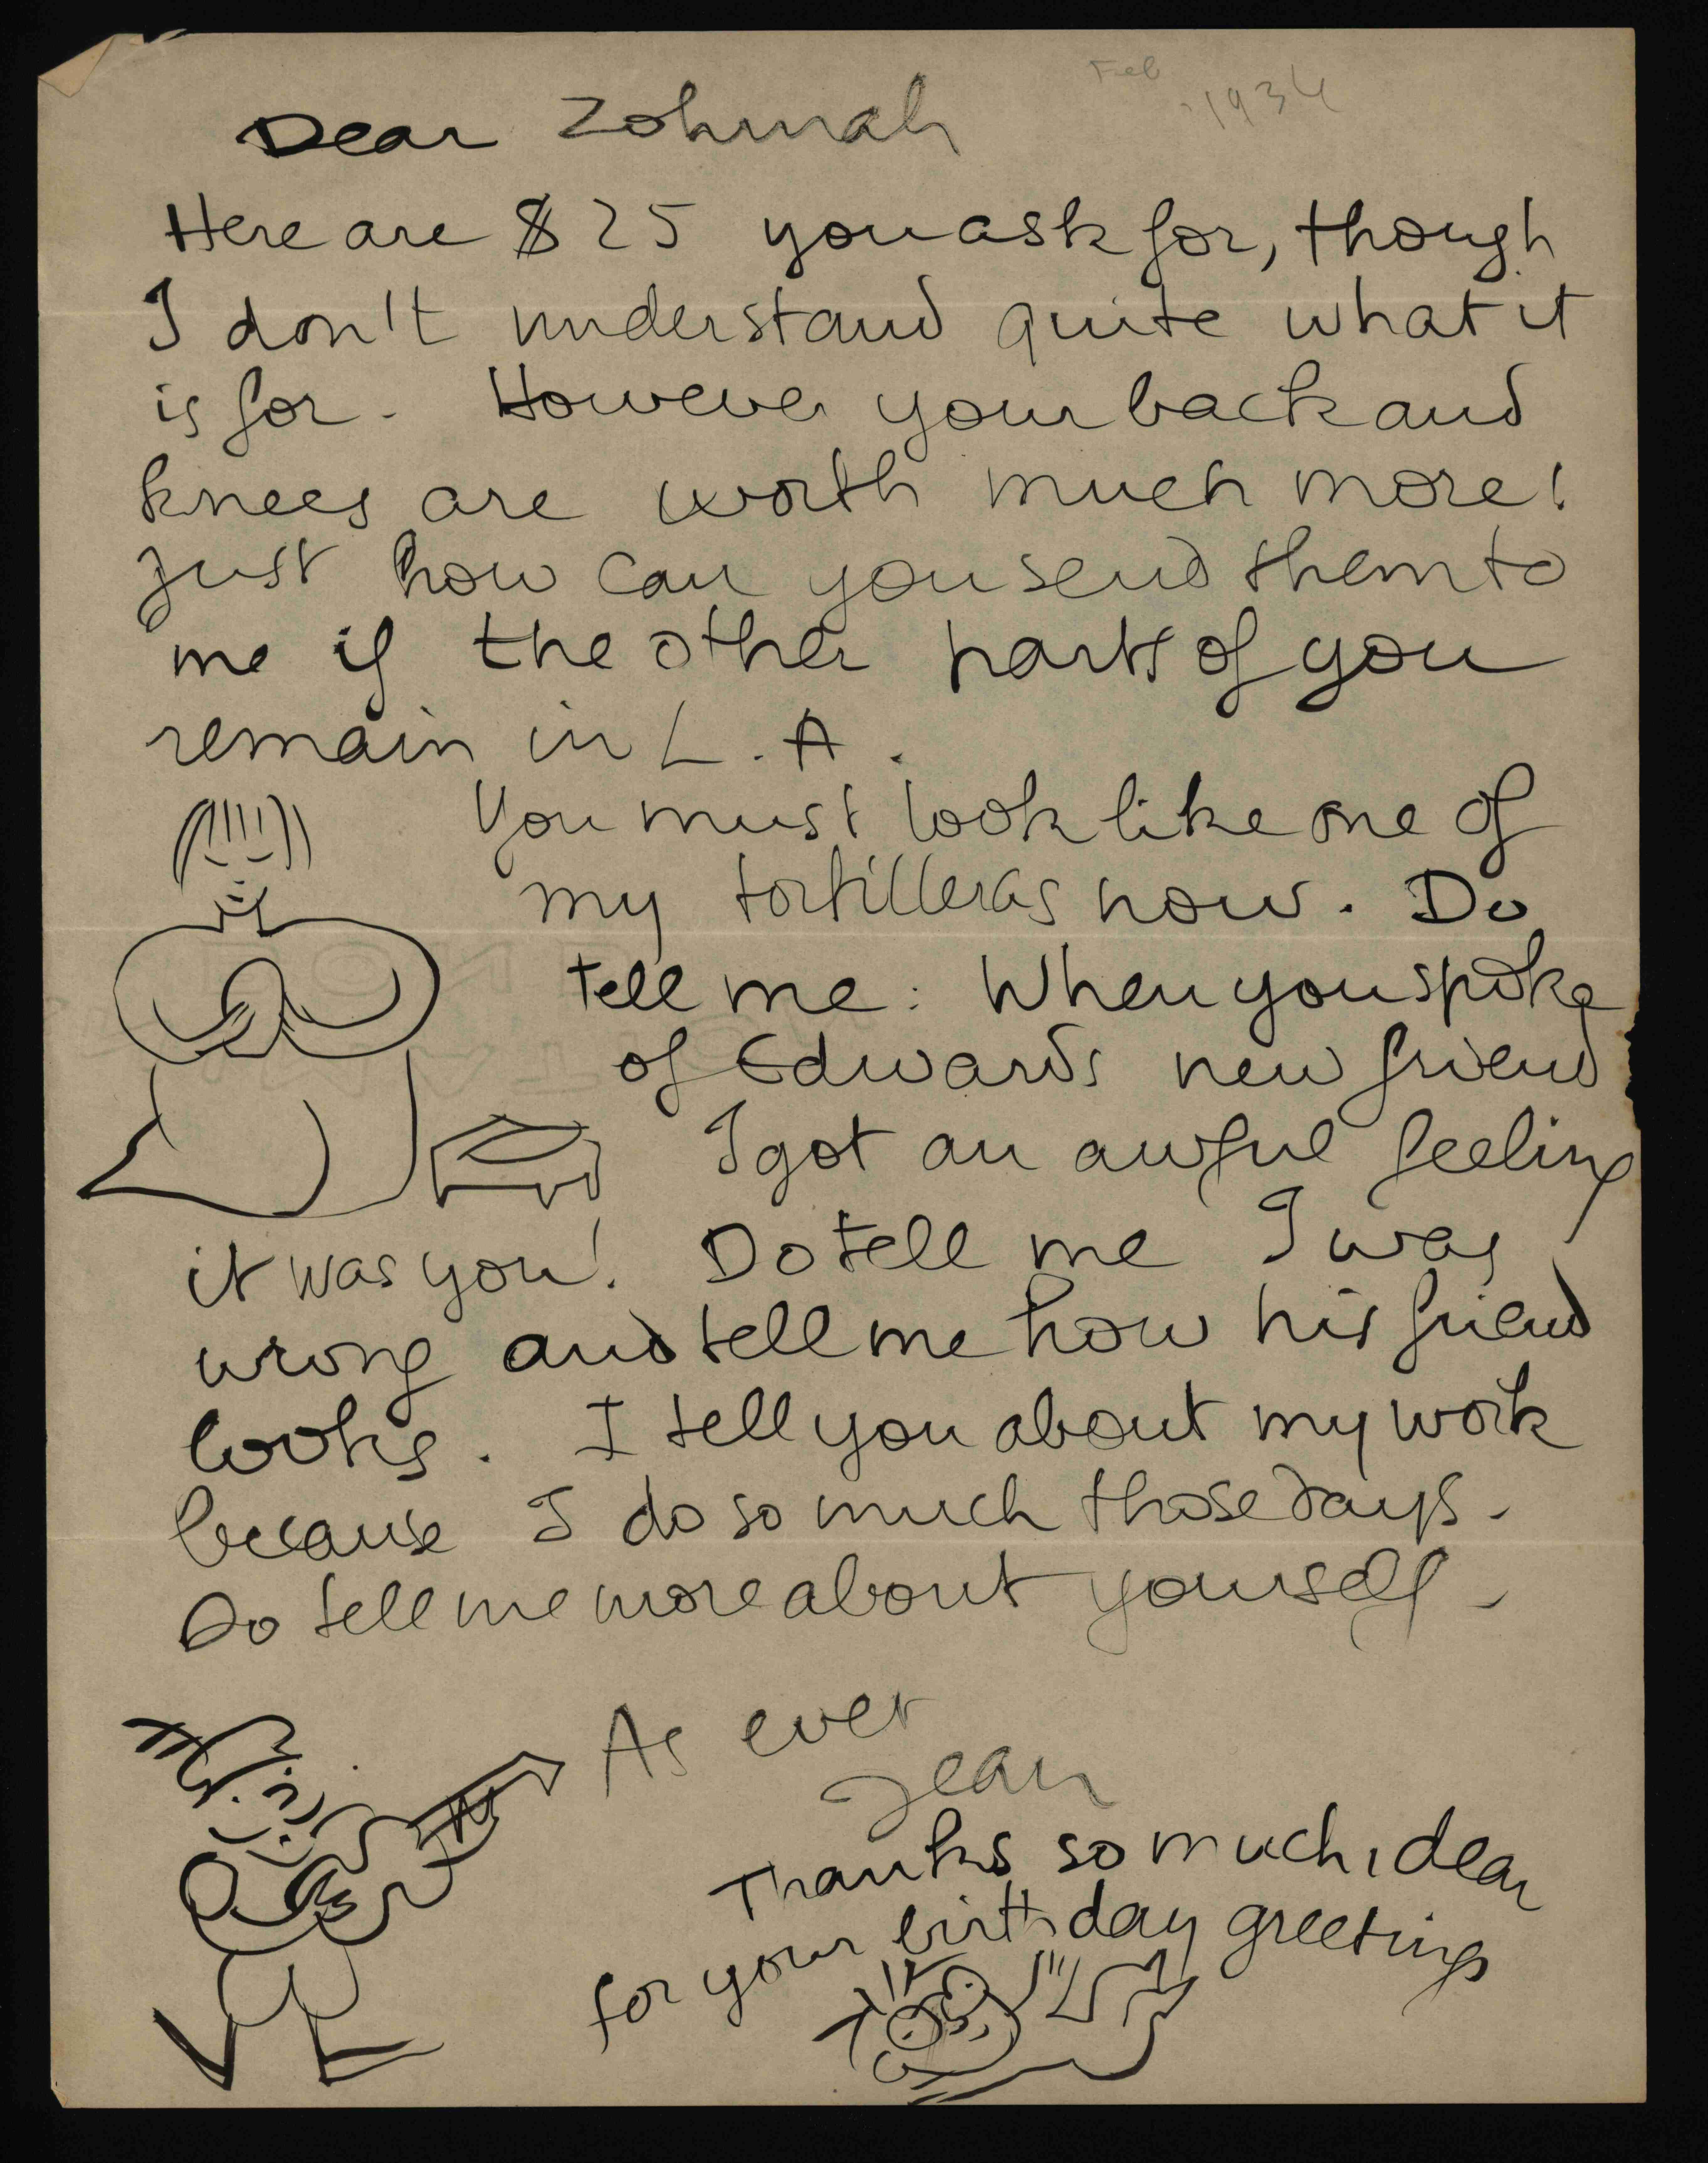 Feb 1934
Dear Zohmah
Here are $25 you ask for, though
I don't understand quite what it
is for. However your back and
knees are worth much more!
Just how can you send them to
me if the other parts of you
remain in L.A.
You must look like one of
my tortilleras now. Do
tell me: When you spoke
of Edwards new friend
I got an awful feeling
it was you! Do tell me I was
wrong and tell me how his friend
looks. I tell you about my work
because I do so much those days.
Do tell me more about yourself -
As ever
Jean
Thanks so much, dear
for your birthday greetings